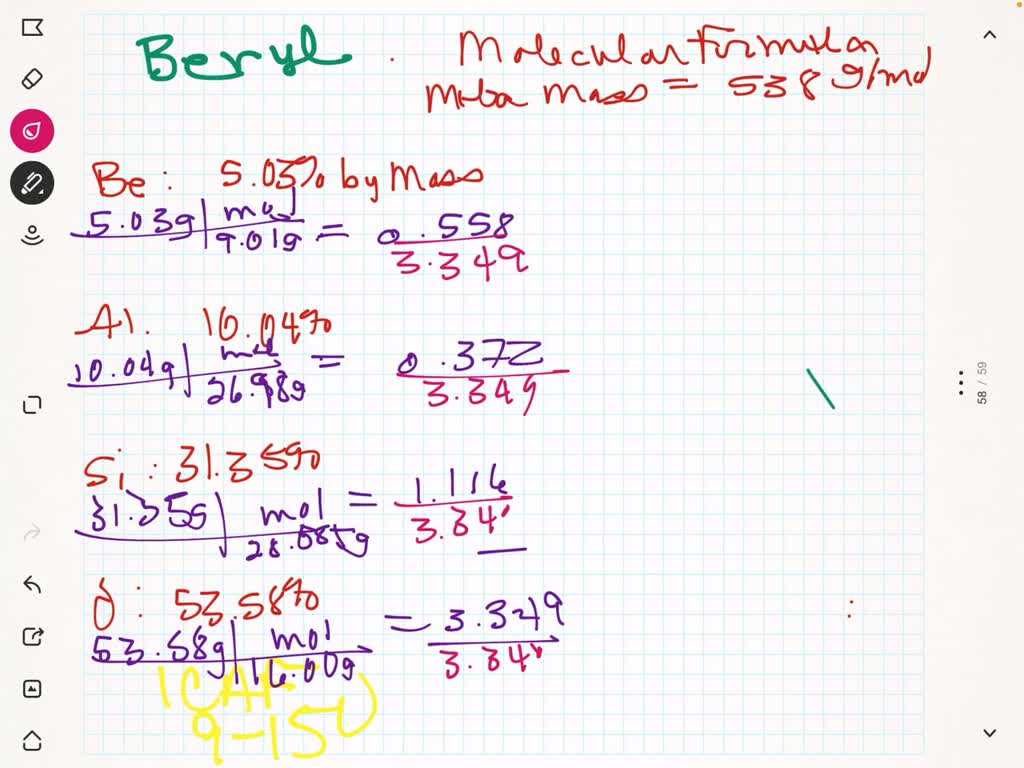 Beryl . Molecular Formula
Molar mass = 538 g/mol
Be : 5.03% by Mass
5.03g | mol = 0.558
9.01g 3.349
Al. 10.04%
10.04g | mol = 0.372
26.98g 3.349
Si : 31.35%
31.35g | mol = 1.116
28.085g 3.34
O : 53.58%
53.58g | mol = 3.349
16.00g 3.34
9-150
58 / 59